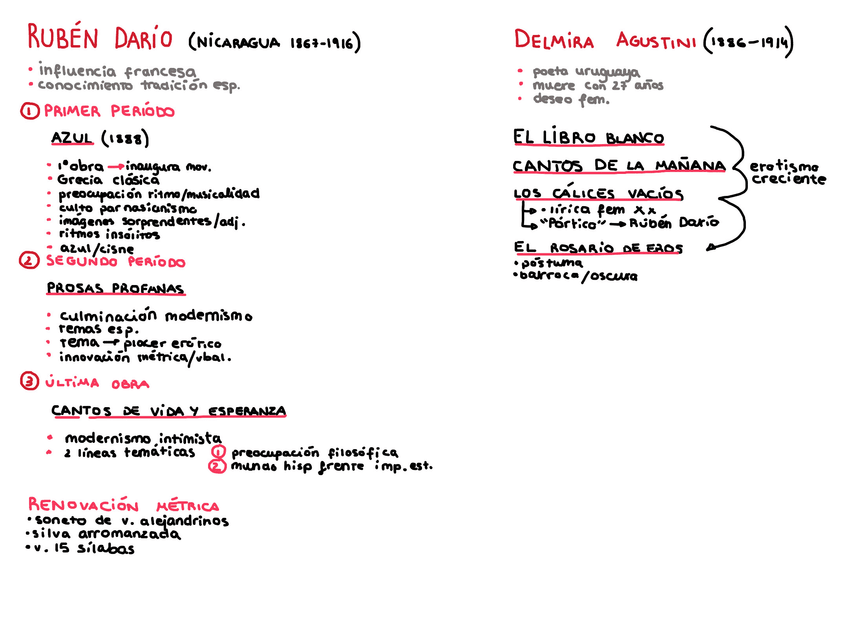 RUBÉN DARÍO (NICARAGUA 1867-1916)
• influencia francesa
• conocimiento tradición esp.
① PRIMER PERÍODO
AZUL (1888)
• 1ª obra → inaugura mov.
• Grecia clásica
• preocupación ritmo/musicalidad
• culto parnasianismo
• imágenes sorprendentes/adj.
• ritmos insólitos
• azul/cisne
② SEGUNDO PERÍODO
PROSAS PROFANAS
• culminación modernismo
• temas esp.
• tema → placer erótico
• innovación métrica/vbal.
③ ÚLTIMA OBRA
CANTOS DE VIDA Y ESPERANZA
• modernismo intimista
• 2 líneas temáticas ① preocupación filosófica
② mundo hisp frente imp. est.
RENOVACIÓN MÉTRICA
• soneto de v. alejandrinos
• silva arromanzada
• v. 15 sílabas
DELMIRA AGUSTINI (1886-1914)
• poeta uruguaya
• muere con 27 años
• deseo fem.
EL LIBRO BLANCO
CANTOS DE LA MAÑANA
LOS CÁLICES VACÍOS
→ • lírica fem XX
→ "Pórtico" → Rubén Darío
EL ROSARIO DE EROS
• póstuma
• barroca/oscura
erotismo
creciente